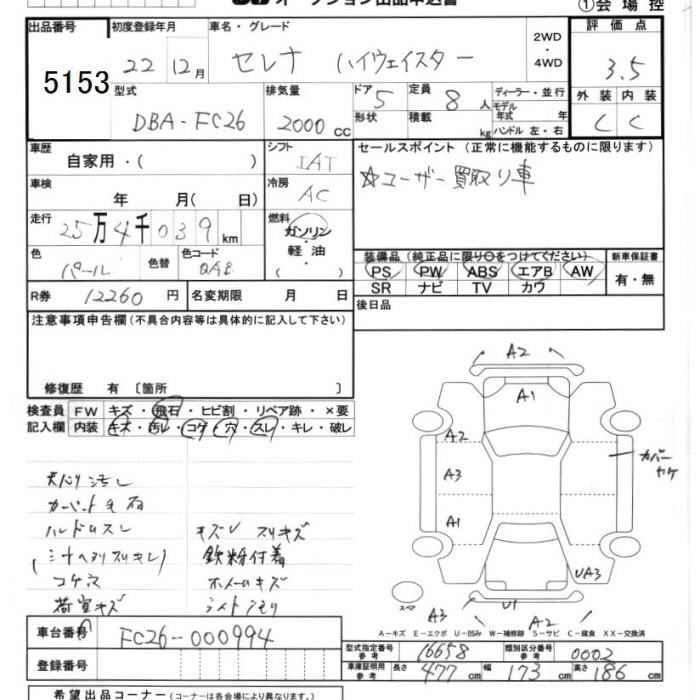 オークション出品申込書
①会場控
出品番号
5153
初度登録年月
22 12月
車名・グレード
セレナ ハイウェイスター
2WD
・
4WD
評価点
3.5
型式
DBA-FC26
排気量
2000 cc
ドア 5
形状
定員 8 人
積載 kg
ディーラー・並行
モデル
年式 年
ハンドル 左・右
外装 内装
C C
車歴
自家用・( )
シフト
IAT
車検
年 月( 日)
冷房
AC
走行
25万4千039km
燃料
ガソリン
・
軽油
( )
色
パール
色替
色コード
QAB
R券 12260円
名変期限 月 日
セールスポイント (正常に機能するものに限ります)
☆ユーザー買取り車
装備品(純正品に限り○をつけてください)
PS PW ABS エアB AW
SR ナビ TV カワ
新車保証書
有・無
後日品
注意事項申告欄(不具合内容等は具体的に記入して下さい)
修復歴 有 〔箇所 〕
検査員
記入欄
FW キズ・飛石・ヒビ割・リペア跡・×要
内装 キズ・汚レ・コゲ・穴・スレ・キレ・破レ
ハンドルスレ
コゲ穴
荷室キズ
キズU スリキズ
鉄粉付着
ホイールキズ
A2
A1
A2
A3
A1
カバー
ヤケ
UA3
スペア
A3
U1
A2
A-キズ E-エクボ U-凹み W-補修跡 S-サビ C-腐食 XX-交換済
車台番号
FC26-000994
登録番号
型式指定番号
参考
16658
類別区分番号
参考
0002
車庫証明用
参考
長さ 477cm 幅 173cm 高さ 186cm
希望出品コーナー(コーナーは各会場により異なります。)